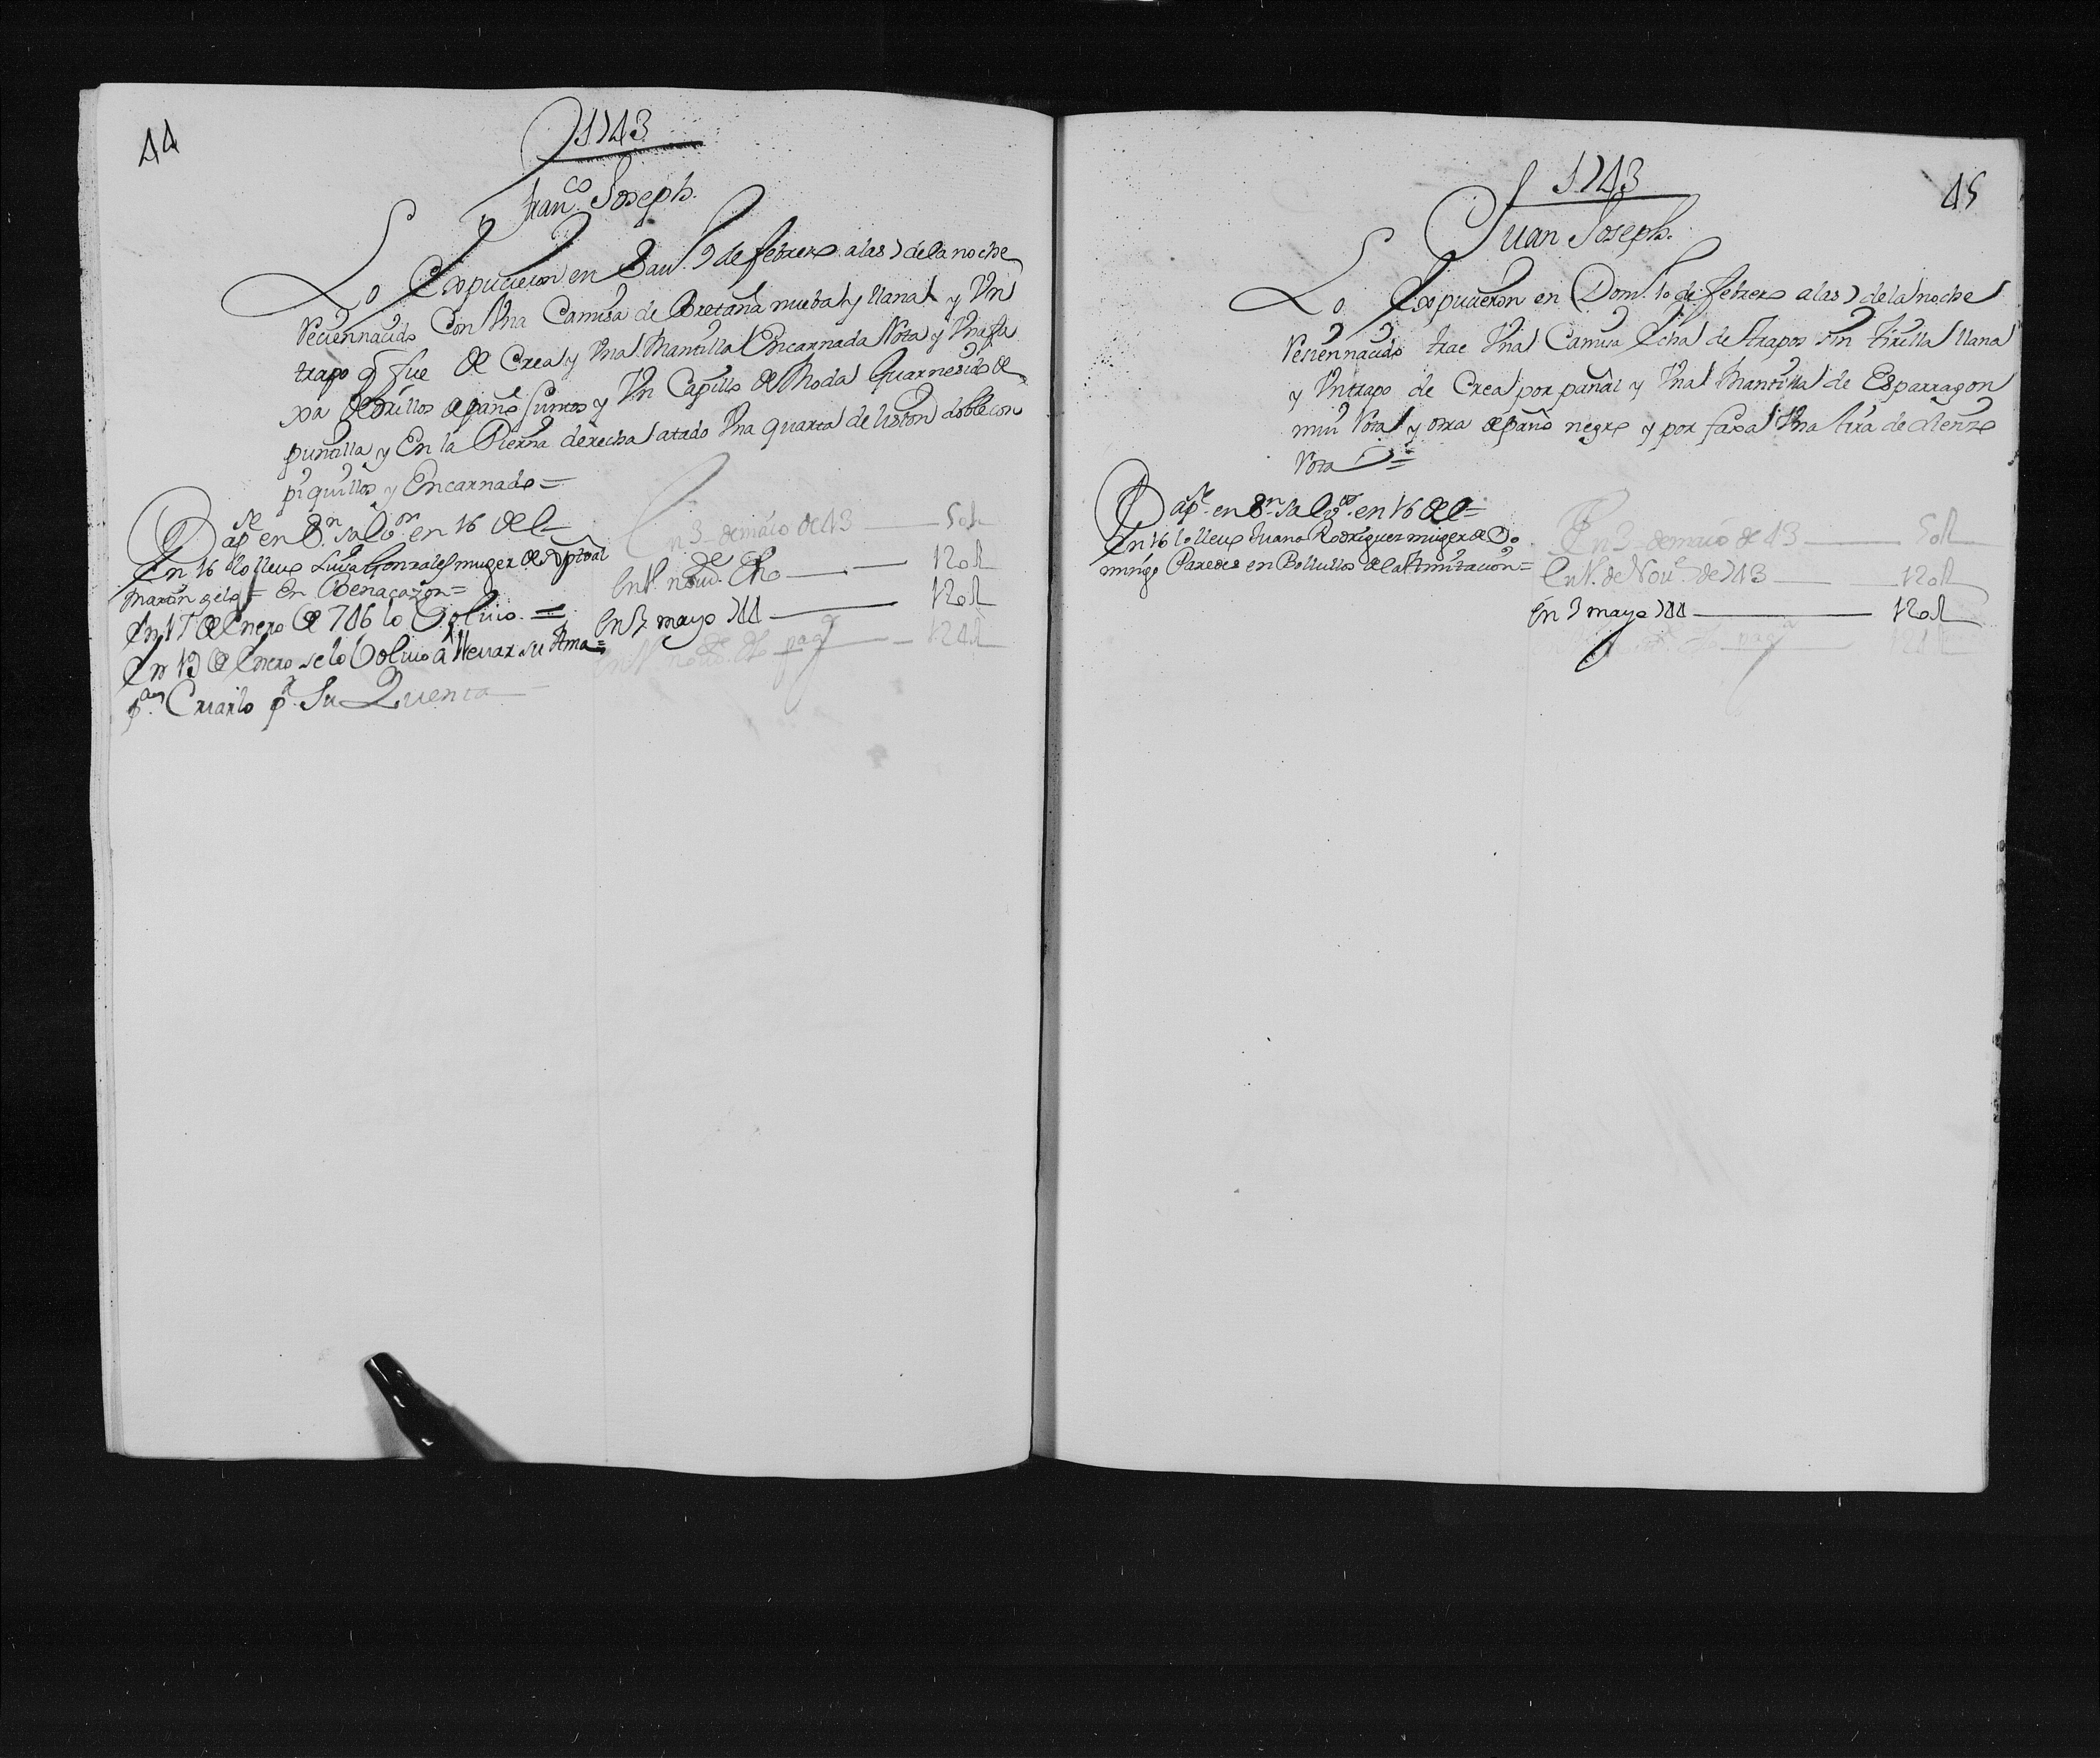 44
1743
Franco. Joseph.
Lo Expucieron en Sau. 9 de febrero a las 7 de la noche
Reciennacido Con Una Camisa de Bretaña nueba y llana y Un
trapo q fue de Crea y Una Mantilla Encarnada Rota y Una fa
xa de orillos de paño Juntos y Un Capillo de Moda Guarnesido de
puntilla y En la Pierna derecha atado Una quarta de liston doble con
piquillos y Encarnado =
Bapse. en Sn. Salor. en 16 del =
En 16 lo llevo Luisa Gonzales muger de Xptoal
Martin gelo = En Benacazon =
En 17 de Enero de 746 lo Volvio =
En 19 de Enero se lo Volvio a llevar su Ama =
pa. Criarlo pr. Su Quenta
En 3 de maio de 43 — 50 R
En 1. novre. dho — 120 R
En 3 mayo 744 — 120 R
En 1. novre. dho paga — 124 R
45
1743
Juan Joseph.
Lo Expucieron en Dom. 10 de febrero a las 7 de la noche
Reciennacido trae Una Camisa Echa de trapos sin tirilla llana
y Un trapo de Crea por pañal y Una Mantilla de Esparragon
mui Rota y otra de paño negro y por faxa Una tira de Lienzo
Rota =
Bapse. en Sn. Salor. en 16 del =
En 16 lo llevo Juana Rodriguez muger de Do
mingo Paredes en Bollullos de la Mitacion =
En 3 de maio de 43 — 50 R
En 1. de Nove. de 743 — 120 R
En 3 mayo 744 — 120 R
paga — 124 R